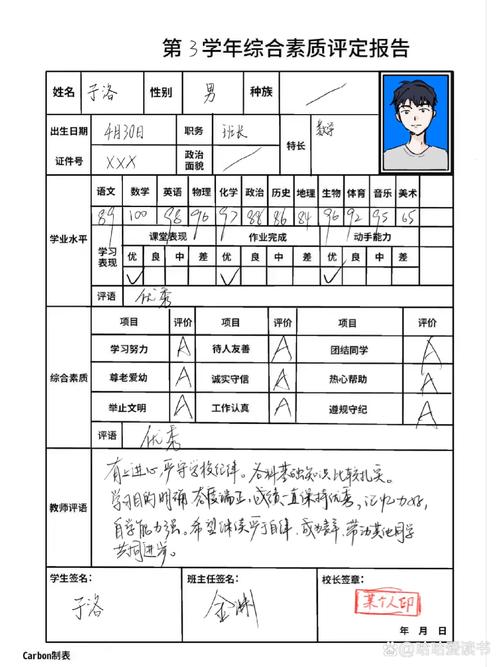 第3学年综合素质评定报告
姓名 于洛 性别 男 种族
出生日期 4月30日 职务 班长 特长 数学
证件号 XXX 政治面貌
学业水平
语文 数学 英语 物理 化学 政治 历史 地理 生物 体育 音乐 美术
89 100 98 96 97 88 86 84 96 92 95 65
学习表现
课堂表现 作业完成 动手能力
优 良 中 差 优 良 中 差 优 良 中 差
✓ ✓ ✓
评语 优秀
综合素质
项目 评价 项目 评价 项目 评价
学习努力 A 待人友善 A 团结同学 A
尊老爱幼 A 诚实守信 A 热心帮助 A
举止文明 A 工作认真 A 遵规守纪 A
评语 优秀
教师评语
有上进心,严守学校纪律。各科基础知识比较扎实。
学习目的明确,态度端正,成绩一直保持优秀,记忆力好,
自学能力强。希望继续严于自律,带动其他同学
共同进步。
学生签名: 班主任签名: 校长签章:
于洛 金 某个人印
年 月 日
Carbon制表
@哈哈爱读书